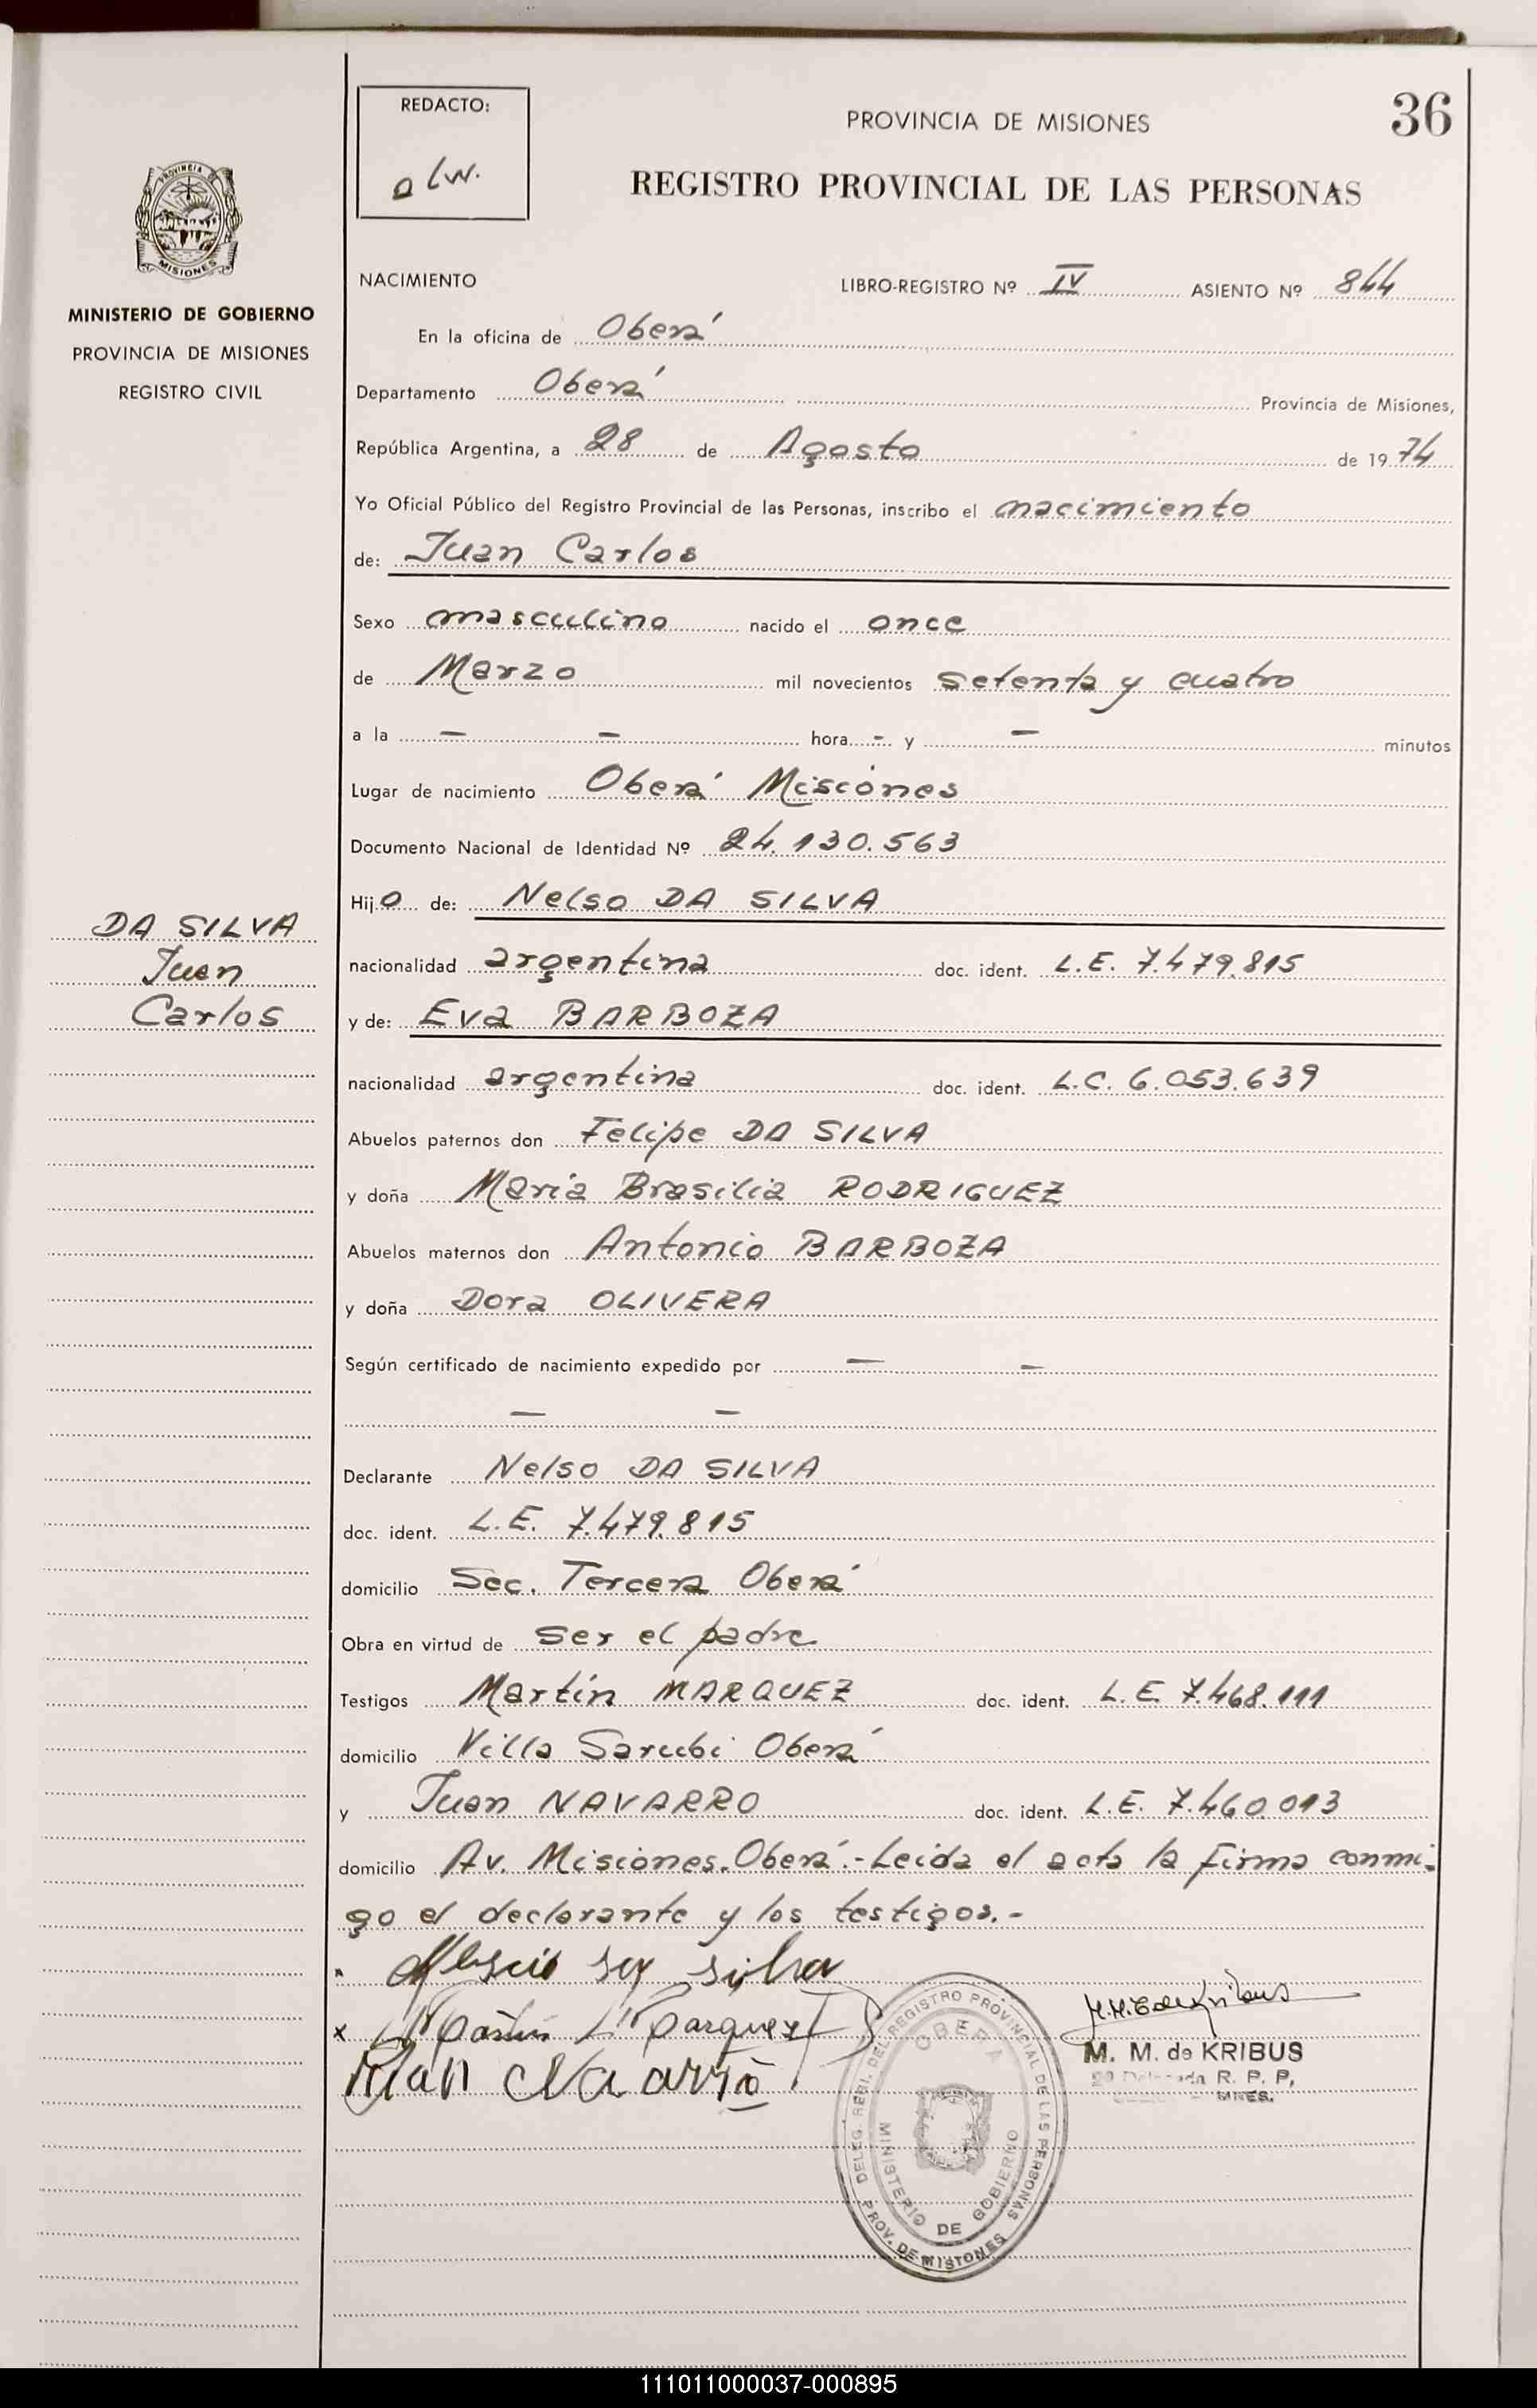 REDACTO:
PROVINCIA DE MISIONES
36
REGISTRO PROVINCIAL DE LAS PERSONAS
PROVINCIA DE
MISIONES
MINISTERIO DE GOBIERNO
PROVINCIA DE MISIONES
REGISTRO CIVIL
NACIMIENTO LIBRO-REGISTRO Nº IV ASIENTO Nº 844
En la oficina de Oberá
Departamento Oberá Provincia de Misiones,
República Argentina, a 28 de Agosto de 1974
Yo Oficial Público del Registro Provincial de las Personas, inscribo el nacimiento
de: Juan Carlos
Sexo masculino nacido el once
de Marzo mil novecientos setenta y cuatro
a la — — hora - y — minutos
Lugar de nacimiento Oberá Misiones
Documento Nacional de Identidad Nº 24.130.563
Hijo de: Nelso DA SILVA
DA SILVA
Juan
Carlos
nacionalidad argentina doc. ident. L.E. 7.479.815
y de: Eva BARBOZA
nacionalidad argentina doc. ident. L.C. 6.053.639
Abuelos paternos don Felipe DA SILVA
y doña Maria Brasilia RODRIGUEZ
Abuelos maternos don Antonio BARBOZA
y doña Dora OLIVERA
Según certificado de nacimiento expedido por — —
— —
Declarante Nelso DA SILVA
doc. ident. L.E. 7.479.815
domicilio Sec. Tercera Oberá
Obra en virtud de ser el padre
Testigos Martín MARQUEZ doc. ident. L.E. 7.468.111
domicilio Villa Sarubi Oberá
y Juan NAVARRO doc. ident. L.E. 7.460.013
domicilio Av. Misiones. Oberá.- Leida el acta la firma conmi-
go el declarante y los testigos.-
silva
x Martin Marquez
M. M. de KRIBUS
R. P. P,
MNES.
DELEG. REGI. DEL REGISTRO PROVINCIAL DE LAS PERSONAS
OBERA
MINISTERIO DE GOBIERNO
PROV. DE MISIONES
111011000037-000895